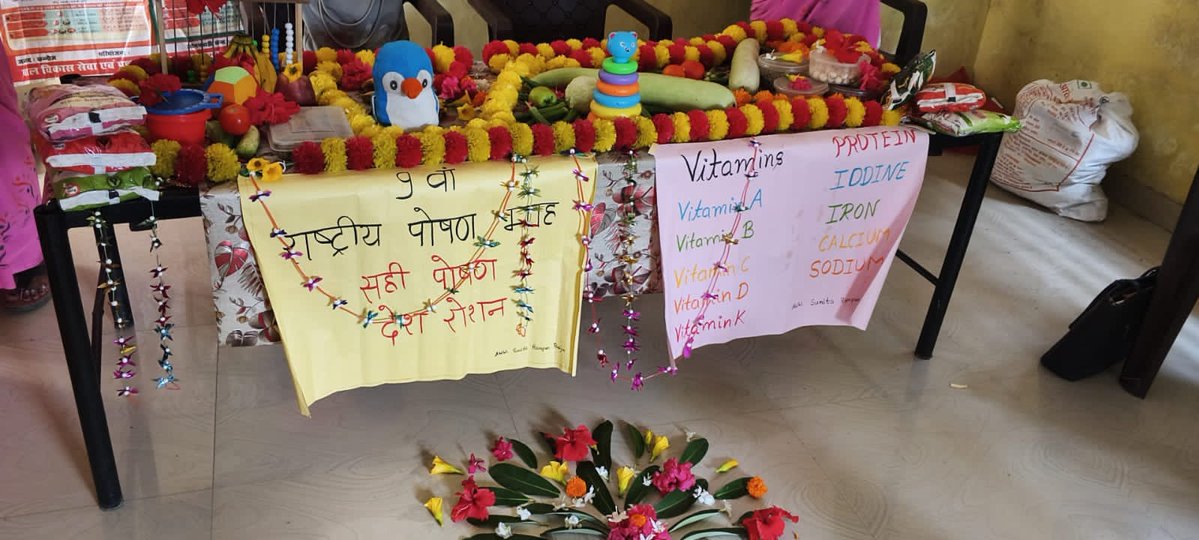 बाल विकास सेवा एवं
9 वां
राष्ट्रीय पोषण माह
सही पोषण
देश रोशन
Vitamins
Vitamin A
Vitamin B
Vitamin C
Vitamin D
Vitamin K
PROTEIN
IODINE
IRON
CALCIUM
SODIUM
Sunita